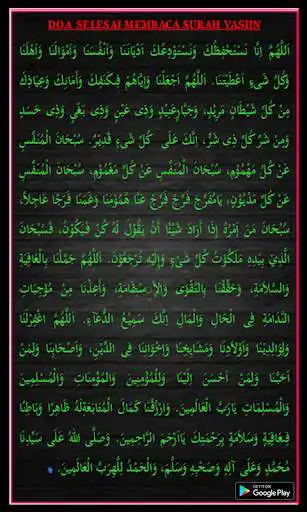 DOA SELESAI MEMBACA SURAH YASIIN
اَللّٰهُمَّ اِنَّا نَسْتَحْفِظُكَ وَنَسْتَوْدِعُكَ اَدْيَانَنَا وَاَنْفُسَنَا وَاَمْوَالَنَا وَاَهْلَنَا
وَكُلَّ شَىْءٍ اَعْطَيْتَنَا. اَللّٰهُمَّ اجْعَلْنَا وَاِيَّاهُمْ فِيْكَنَفِكَ وَاَمَانِكَ وَعِيَاذِكَ
مِنْ كُلِّ شَيْطَانٍ مَرِيْدٍ، وَجَبَّارٍعَنِيْدٍ وَذِى عَيْنٍ وَذِى بَغْيٍ وَذِى حَسَدٍ
وَمِنْ شَرِّ كُلِّ ذِى شَرٍّ، اِنَّكَ عَلَى كُلِّ شَىْءٍ قَدِيْرٌ. سُبْحَانَ الْمُنَفِّسِ
عَنْ كُلِّ مَهْمُوْمٍ، سُبْحَانَ الْمُنَفِّسِ عَنْ كُلِّ مَغْمُوْمٍ، سُبْحَانَ الْمُنَفِّسِ
عَنْ كُلِّ مَدْيُوْنٍ، يَامُفَرِّجَ فَرِّجْ فَرِّجْ عَنَّا هُمُوْمَنَا وَغَمَّنَا فَرَجًا عَاجِلًا،
سُبْحَانَ مَنْ اَمْرُهُ إِذَا اَرَادَ شَيْئًا أَنْ يَقُوْلَ لَهُ كُنْ فَيَكُوْنُ. فَسُبْحَانَ
الَّذِيْ بِيَدِهِ مَلَكُوْتُ كُلِّ شَىْءٍ وَاِلَيْهِ تُرْجَعُوْنَ. اَللّٰهُمَّ جَمِّلْنَا بِالْعَافِيَةِ
وَالسَّلَامَةِ، وَحَقِّقْنَا بِالتَّقْوَى وَالْاِسْتِقَامَةِ، وَأَعِذْنَا مِنْ مُوْجِبَاتِ
النَّدَامَةِ فِى الْحَالِ وَالْمَالِ اِنَّكَ سَمِيْعُ الدُّعَآءِ. اَللّٰهُمَّ اغْفِرْلَنَا
وَلِوَالِدَيْنَا وَاَوْلَادِنَا وَمَشَايِخِنَا وَاِخْوَانِنَا فِى الدِّيْنِ، وَأَصْحَابِنَا وَلِمَنْ
اَحَبَّنَا وَلِمَنْ اَحْسَنَ اِلَيْنَا وَلِلْمُؤْمِنِيْنَ وَالْمُؤْمِنَاتِ وَالْمُسْلِمِيْنَ
وَالْمُسْلِمَاتِ يَارَبَّ الْعَالَمِيْنَ. وَارْزُقْنَا كَمَالَ الْمُتَابَعَةِلَهُ ظَاهِرًا وَبَاطِنًا
فِىعَافِيَةٍ وَسَلَامَةٍ بِرَحْمَتِكَ يَااَرْحَمَ الرَّاحِمِيْنَ. وَصَلَّى اللهُ عَلَى سَيِّدِنَا
مُحَمَّدٍ وَعَلَى آلِهِ وَصَحْبِهِ وَسَلَّمَ، وَالْحَمْدُ لِلّٰهِرَبِّ الْعَالَمِيْنَ.
GET IT ON
Google Play